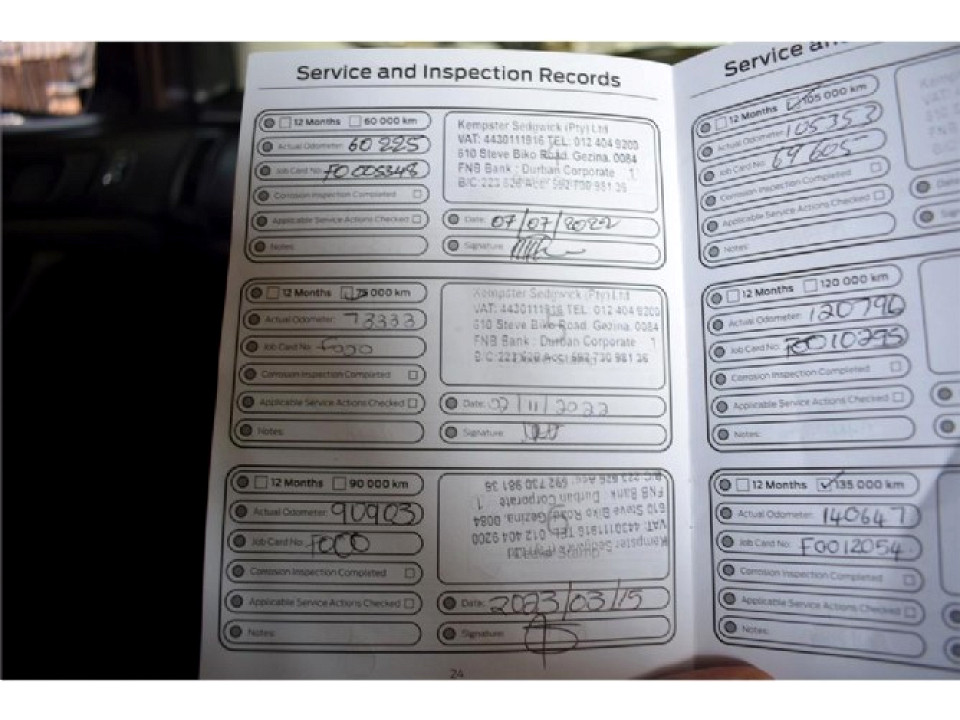 Service and Inspection Records
12 Months 60 000 km
Actual Odometer: 60 225
Job Card No: FO 005348
Corrosion Inspection Completed
Applicable Service Actions Checked
Notes:
Kempster Sedgwick (Pty) Ltd
VAT: 4430111916 TEL: 012 404 9200
610 Steve Biko Road, Gezina, 0084
FNB Bank : Durban Corporate 1
B/C 223 626 Acc: 592 730 981 36
Date: 07/07/2022
Signature:
12 Months 75 000 km
Actual Odometer: 73333
Job Card No: F000
Corrosion Inspection Completed
Applicable Service Actions Checked
Notes:
Kempster Sedgwick (Pty) Ltd
VAT: 4430111916 TEL: 012 404 9200
610 Steve Biko Road, Gezina, 0084
FNB Bank : Durban Corporate 1
B/C: 223 626 Acc: 592 730 981 36
Date: 02/11/2022
Signature:
12 Months 90 000 km
Actual Odometer: 90903
Job Card No: F000
Corrosion Inspection Completed
Applicable Service Actions Checked
Notes:
Kempster Sedgwick
VAT: 4430111916 TEL: 012 404 9200
610 Steve Biko Road, Gezina, 0084
FNB Bank : Durban Corporate 1
B/C 223 626 Acc: 592 730 981 36
Date: 2023/03/15
Signature:
24
Service
12 Months 105 000 km
Actual Odometer: 105353
Job Card No: 69605
Corrosion Inspection Completed
Applicable Service Actions Checked
Notes:
Kempster
VAT:
12 Months 120 000 km
Actual Odometer: 120796
Job Card No: F0010295
Corrosion Inspection Completed
Applicable Service Actions Checked
Notes:
12 Months 135 000 km
Actual Odometer: 140647
Job Card No: F0012054
Corrosion Inspection Completed
Applicable Service Actions Checked
Notes: